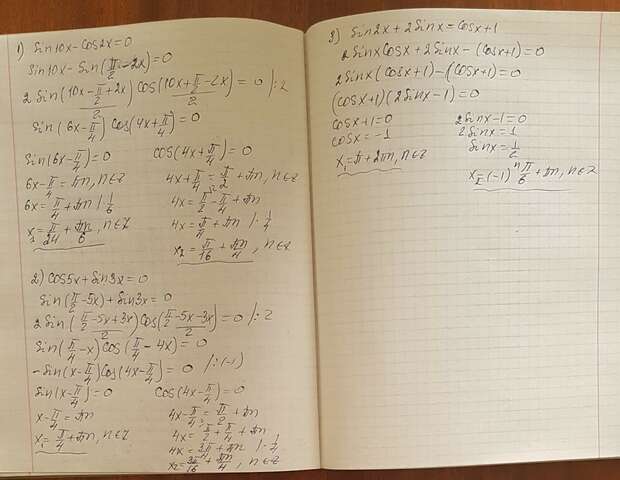 1) Sin10x-cos2x=0
Sin10x-Sin(π/2-2x)=0
2Sin((10x-π/2+2x)/2)cos((10x+π/2-2x)/2)=0 /:2
Sin(6x-π/4)cos(4x+π/4)=0
Sin(6x-π/4)=0 cos(4x+π/4)=0
6x-π/4=πn, n∈z 4x+π/4=π/2+πn, n∈z
6x=π/4+πn /·1/6 4x=π/2-π/4+πn
x₁=π/24+πn/6, n∈z 4x=π/4+πn /·1/4
x₂=π/16+πn/4, n∈z
2) cos5x+Sin3x=0
Sin(π/2-5x)+Sin3x=0
2Sin((π/2-5x+3x)/2)cos((π/2-5x-3x)/2)=0 /:2
Sin(π/4-x)cos(π/4-4x)=0
-Sin(x-π/4)cos(4x-π/4)=0 /:(-1)
Sin(x-π/4)=0 cos(4x-π/4)=0
x-π/4=πn 4x-π/4=π/2+πn
x₁=π/4+πn, n∈z 4x=π/2+π/4+πn
4x=3π/4+πn /·1/4
x₂=3π/16+πn/4, n∈z
3) Sin2x+2Sinx=cosx+1
2Sinxcosx+2Sinx-(cosx+1)=0
2Sinx(cosx+1)-(cosx+1)=0
(cosx+1)(2Sinx-1)=0
cosx+1=0 2Sinx-1=0
cosx=-1 2Sinx=1
x₁=π+2πn, n∈z Sinx=1/2
x₂=(-1)ⁿπ/6+πn, n∈z